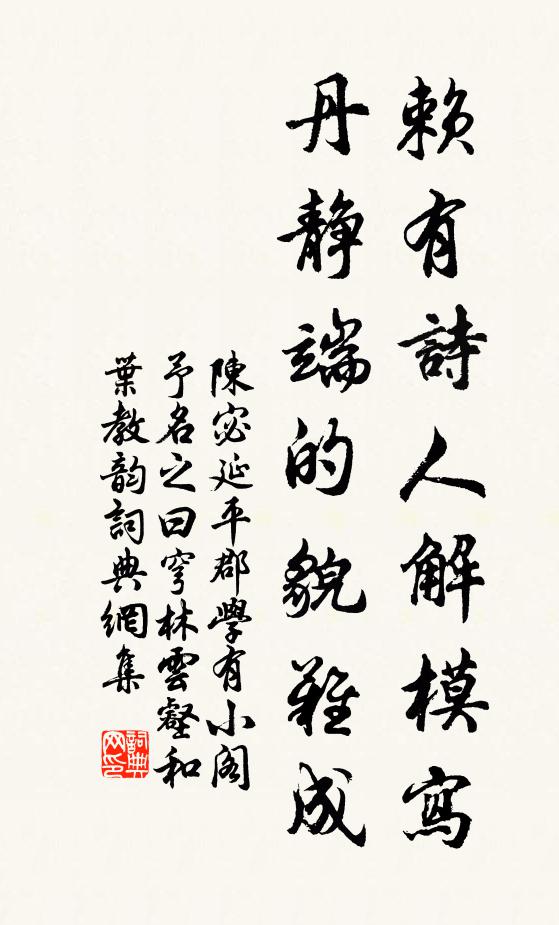 賴有詩人解模寫
丹靜端的貌難成
陳宓延平郡學有小閣
予名之曰穹林雲壑和
葉教韵詞典網集
詞典网印